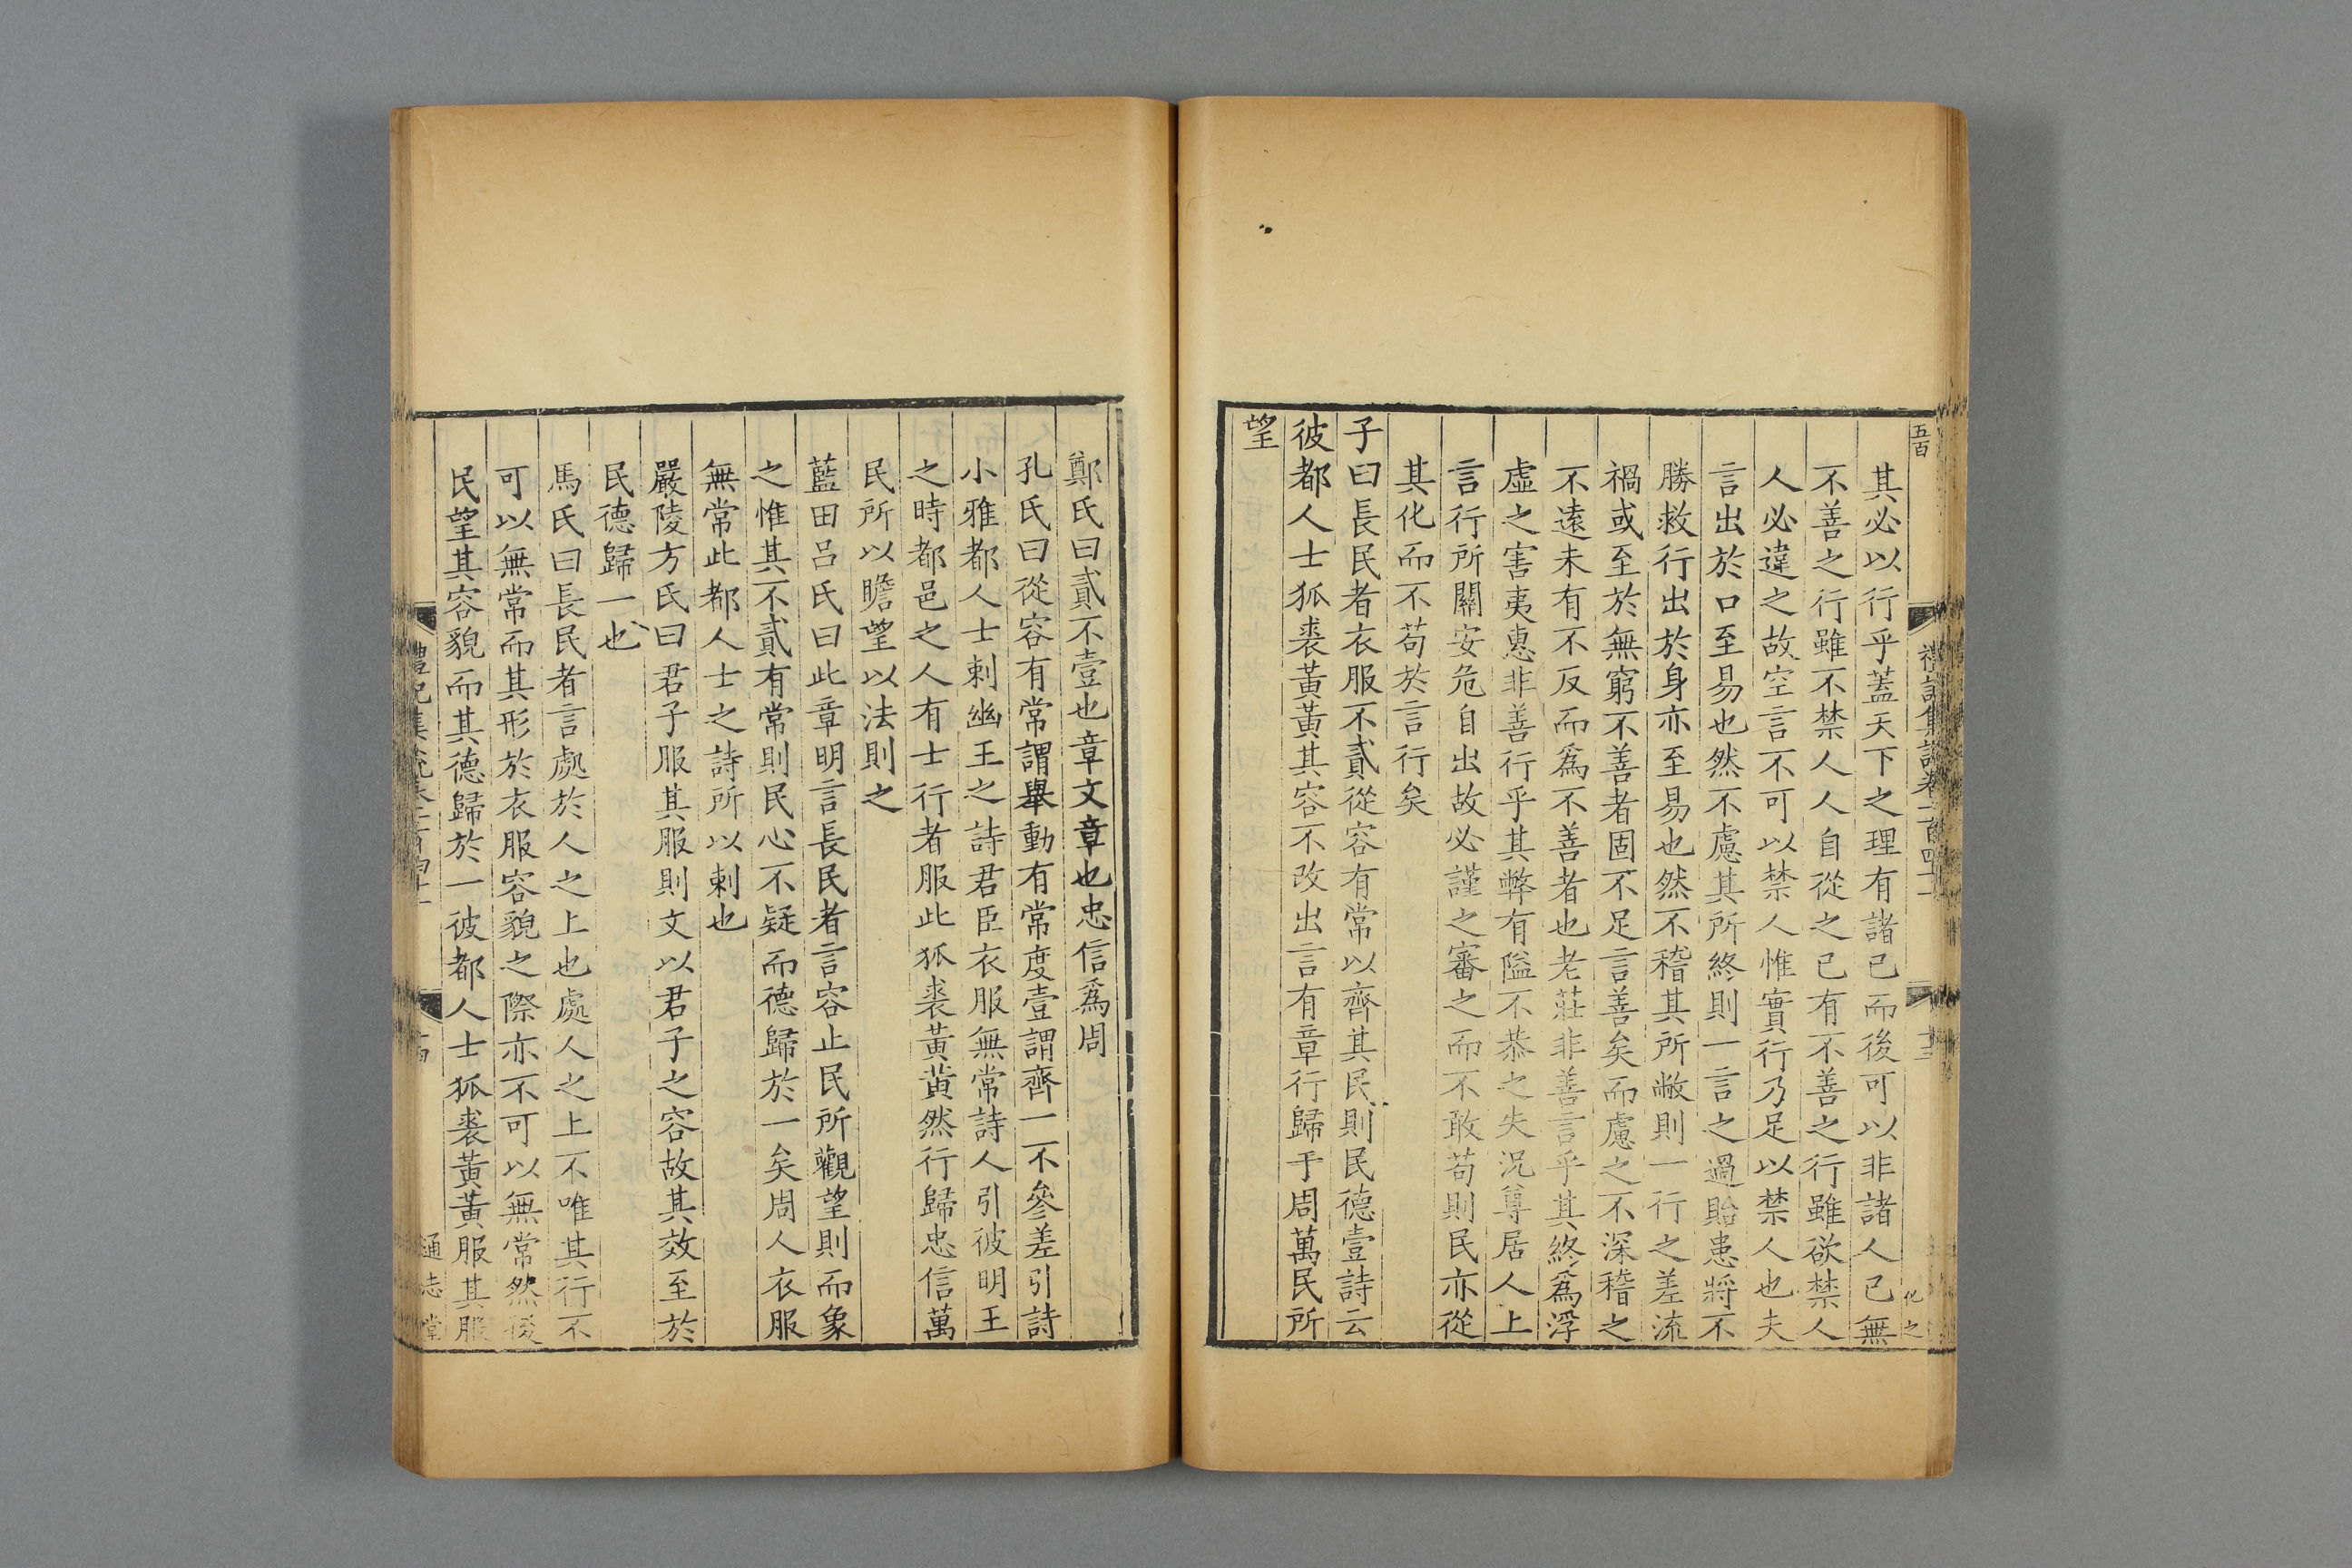 五百
其必以行乎蓋天下之理有諸己而後可以非諸人己無
不善之行雖不禁人人自從之己有不善之行雖欲禁人
人必違之故空言不可以禁人惟實行乃足以禁人也夫
言出於口至易也然不慮其所終則一言之過貽患將不
勝救行出於身亦至易也然不稽其所敝則一行之差流
禍或至於無窮不善者固不足言善矣而慮之不深稽之
不遠未有不反而爲不善者也老莊非善言乎其終爲浮
虛之害夷惠非善行乎其弊有隘不恭之失況尊居人上
言行所關安危自出故必謹之審之而不敢苟則民亦從
其化而不苟於言行矣
子曰長民者衣服不貳從容有常以齊其民則民德壹詩云
彼都人士狐裘黃黃其容不改出言有章行歸于周萬民所
望
鄭氏曰貳不壹也章文章也忠信爲周
孔氏曰從容有常謂舉動有常度壹謂齊一不參差引詩
小雅都人士刺幽王之詩君臣衣服無常詩人引彼明王
之時都邑之人有士行者服此狐裘黃黃然行歸忠信萬
民所以瞻望以法則之
藍田呂氏曰此章明言長民者言容止民所觀望則而象
之惟其不貳有常則民心不疑而德歸於一矣周人衣服
無常此都人士之詩所以刺也
嚴陵方氏曰君子服其服則文以君子之容故其效至於
民德歸一也
馬氏曰長民者言處於人之上也處人之上不唯其行不
可以無常而其形於衣服容貌之際亦不可以無常然後
民望其容貌而其德歸於一彼都人士狐裘黃黃服其服
通志堂